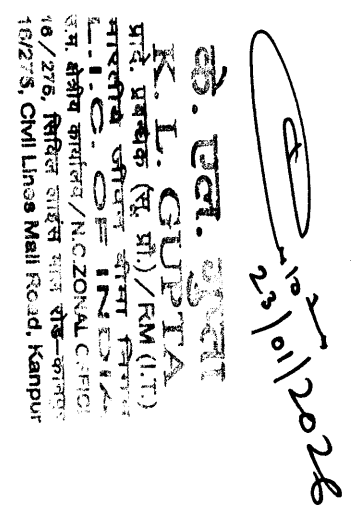 23/01/2026
के. एल. गुप्ता
K. L. GUPTA
प्रादे. प्रबन्धक (सू. प्रौ.) / RM (I.T.)
भारतीय जीवन बीमा निगम
L. I. C. OF INDIA
उ.म. क्षेत्रीय कार्यालय / N.C. ZONAL OFFICE
16 / 275, सिविल लाइंस माल रोड-कानपुर
16/275, Civil Lines Mall Road, Kanpur